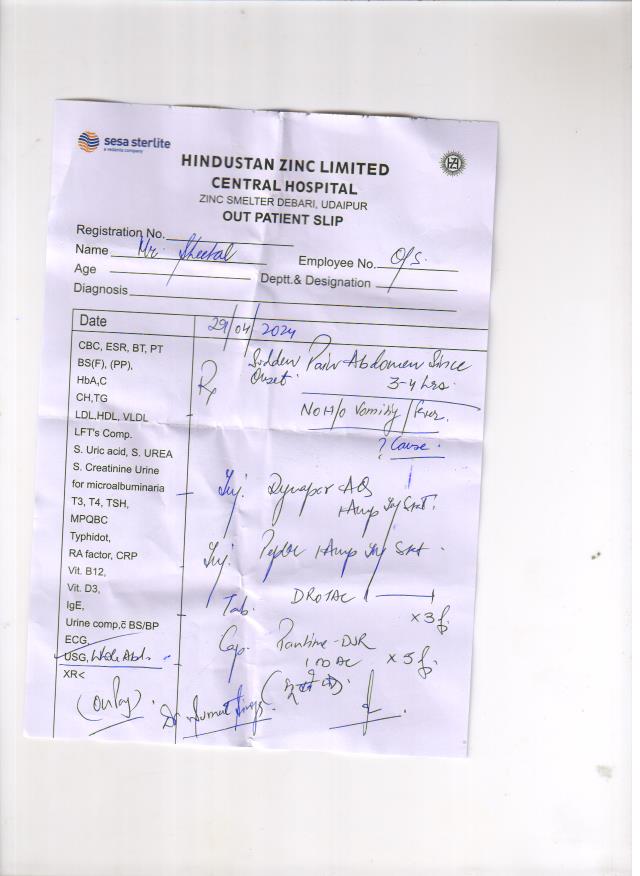 sesa sterlite
a vedanta company
HINDUSTAN ZINC LIMITED
CENTRAL HOSPITAL
ZINC SMELTER DEBARI, UDAIPUR
OUT PATIENT SLIP
Registration No.
Name Mr. Sheetal Employee No. O/S.
Age Deptt.& Designation
Diagnosis
Date 29/04/2024
CBC, ESR, BT, PT
BS(F), (PP),
HbA,C
CH,TG
LDL,HDL, VLDL
LFT's Comp.
S. Uric acid, S. UREA
S. Creatinine Urine
for microalbuminaria
T3, T4, TSH,
MPQBC
Typhidot,
RA factor, CRP
Vit. B12,
Vit. D3,
IgE,
Urine comp,c̄ BS/BP
ECG,
USG, Whole Abd.
XR<
Rx
Sudden Pain Abdomen Since
Onset. 3-4 hrs.
No H/o Vomiting / fever.
? Cause.
Inj. Dynapar-AQ
1 Amp Stat.
Inj. 1 Amp Stat.
Tab. DROTAC
x 3
Cap. Pantime-DSR
1 OD AC x 5